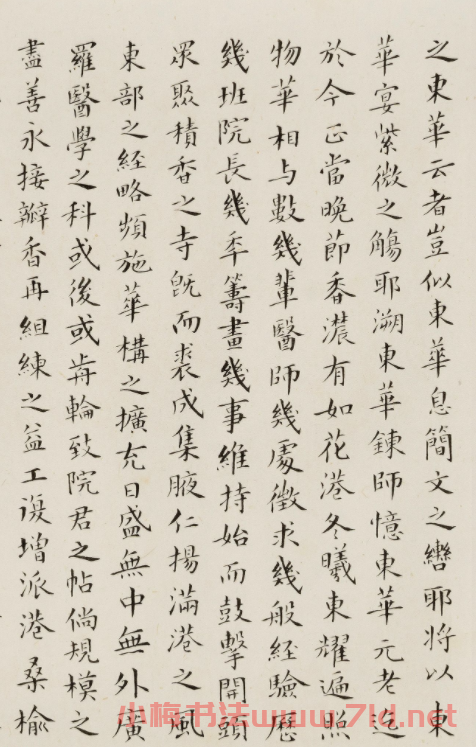 之東華云者豈似東華息簡文之轡耶將以東
華宴紫微之觴耶溯東華鍊師憶東華元老迄
於今正當晚節香濃有如花港冬曦東耀遍照
物華相与數幾輩醫師幾處徵求幾般経驗歷
幾班院長幾年籌畫幾事維持始而鼓擊開頭
眾聚積香之寺旣而裘成集腋仁揚滿港之風
東部之経略頻施華構之擴充日盛無中無外廣
羅醫學之科或後或歬輪致院君之帖倘規模之
盡善永接瓣香再組練之益工復增派港桑榆
小梅书法www.7ld.net